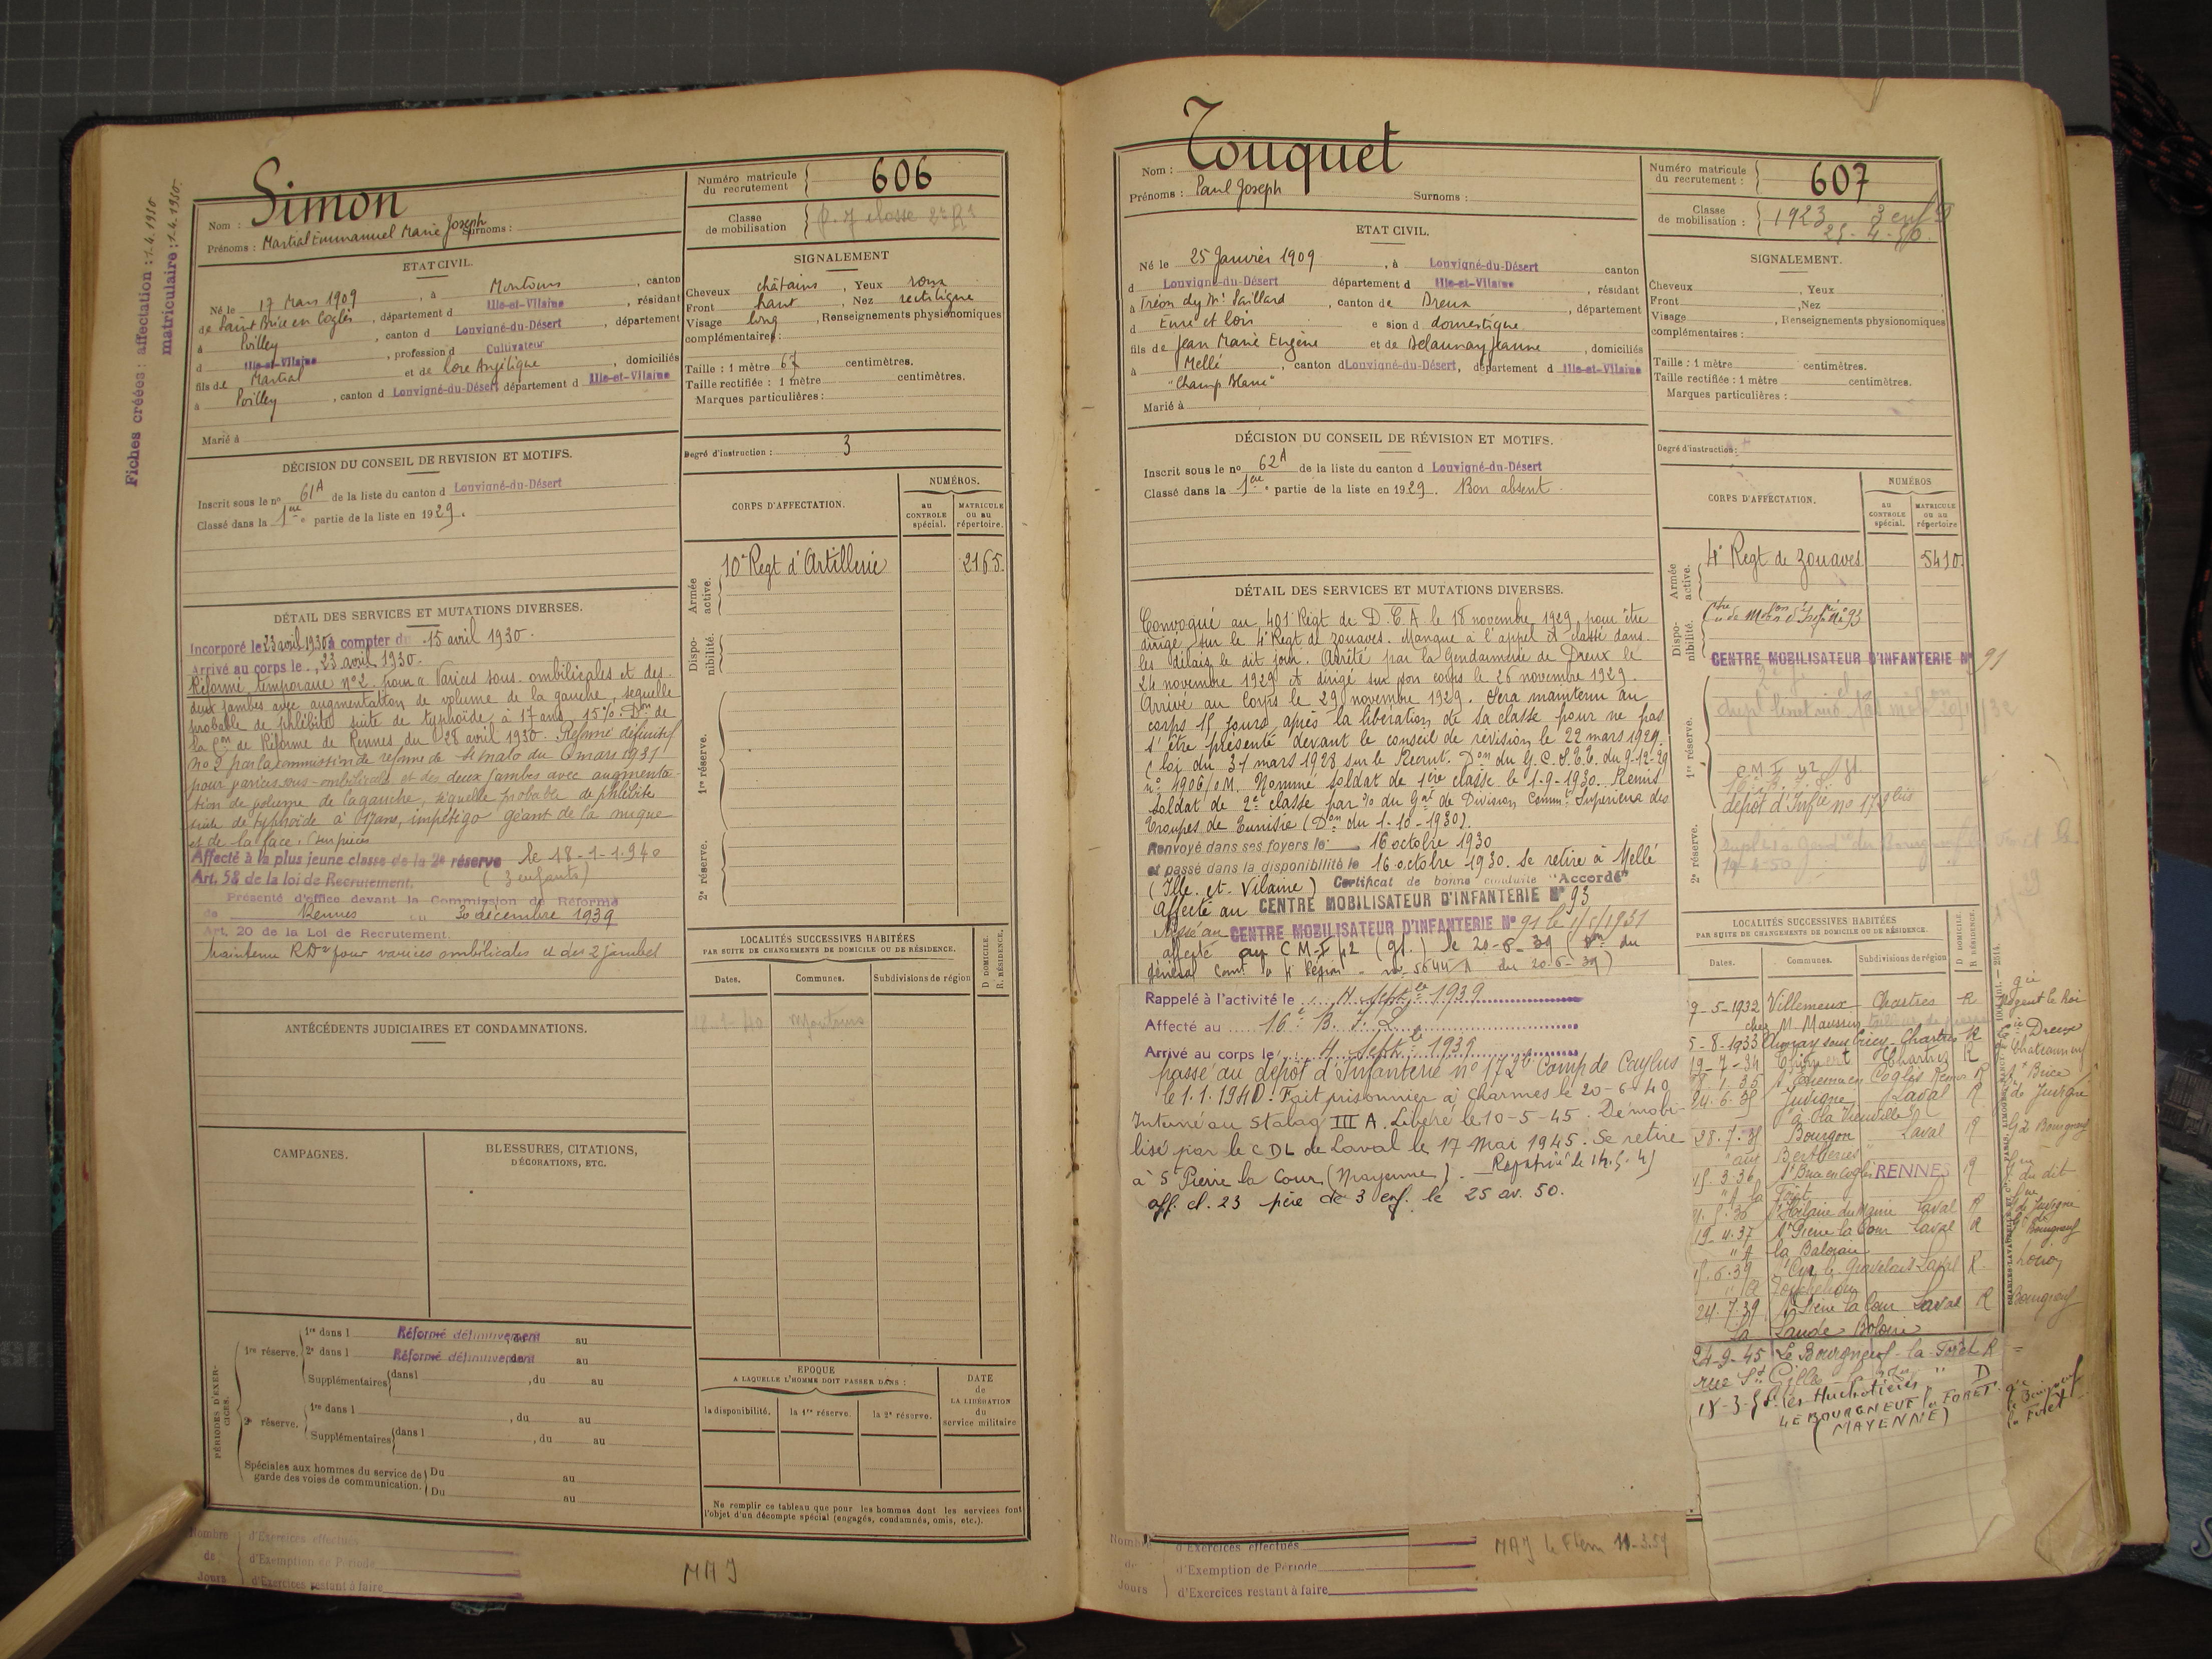 Fiches créées : affectation : 1.4.1930
matriculaire : 1.4.1930
Nom : Simon
Prénoms : Martial Emmanuel Marie Joseph Surnoms :
Numéro matricule du recrutement 606
Classe de mobilisation
ETAT CIVIL.
Né le 17 Mars 1909, à Montours, canton
de Saint Brice en Coglès, département d Ille-et-Vilaine, résidant
à Poilley, canton d Louvigné-du-Désert, département
d Ille-et-Vilaine, profession d Cultivateur
fils de Martial et de Lore Angélique, domiciliés
à Poilley, canton d Louvigné-du-Désert département d Ille-et-Vilaine
Marié à
SIGNALEMENT
Cheveux châtains, Yeux roux
Front haut, Nez rectiligne
Visage long, Renseignements physionomiques
complémentaires :
Taille : 1 mètre 67 centimètres.
Taille rectifiée : 1 mètre centimètres.
Marques particulières :
Degré d'instruction : 3
DÉCISION DU CONSEIL DE REVISION ET MOTIFS.
Inscrit sous le n° 61A de la liste du canton d Louvigné-du-Désert
Classé dans la 1ère partie de la liste en 1929.
CORPS D'AFFECTATION.
NUMÉROS.
au CONTROLE spécial.
MATRICULE ou au répertoire.
Armée active.
10e Regt d'Artillerie 2165.
Disponibilité.
1re réserve.
2e réserve.
DÉTAIL DES SERVICES ET MUTATIONS DIVERSES.
Incorporé le 23 avril 1930 à compter du 15 avril 1930.
Arrivé au corps le 23 avril 1930.
Réformé temporaire n°2 pour : Varices sous-ombilicales et des
deux jambes avec augmentation de volume de la gauche, sequelle
probable de phlébite suite de typhoïde à 17 ans 15%. Don de
la Con de Réforme de Rennes du 28 avril 1930. Réformé définitif
n° 2 par la commission de réforme de St malo du 6 mars 1931
pour varices sous-ombilicales et des deux jambes avec augmenta-
tion de volume de la gauche, séquelle probable de phlébite
suite de typhoïde à 17 ans, impétigo géant de la nuque
et de la face. (sur pièces
Affecté à la plus jeune classe de la 2e réserve le 18-1-1940
Art. 58 de la loi de Recrutement. (3 enfants)
Présenté d'office devant la Commission de Réforme
de Rennes du 30 décembre 1939
Art. 20 de la Loi de Recrutement.
Maintenu RD2 pour varices ombilicales et des 2 jambes
ANTÉCÉDENTS JUDICIAIRES ET CONDAMNATIONS.
CAMPAGNES.
BLESSURES, CITATIONS, DÉCORATIONS, ETC.
LOCALITÉS SUCCESSIVES HABITÉES
PAR SUITE DE CHANGEMENTS DE DOMICILE OU DE RÉSIDENCE.
D. DOMICILE. R. RÉSIDENCE.
Dates. Communes. Subdivisions de région
Montours
PÉRIODES D'EXERCICES.
1re réserve. 1re dans l Réformé définitivement au
2e dans l Réformé définitivement au
Supplémentaires dans l, du au
2e réserve. 1re dans l, du au
Supplémentaires dans l, du au
Spéciales aux hommes du service de garde des voies de communication. Du au
Du au
EPOQUE
A LAQUELLE L'HOMME DOIT PASSER DANS :
la disponibilité. la 1re réserve. la 2e réserve.
DATE de LA LIBÉRATION du service militaire
Ne remplir ce tableau que pour les hommes dont les services font
l'objet d'un décompte spécial (engagés, condamnés, omis, etc.).
Nombre de Jours
d'Exercices effectués
d'Exemption de Période
d'Exercices restant à faire
MAJ
Nom : Touquet
Prénoms : Paul Joseph Surnoms :
Numéro matricule du recrutement : 607
Classe de mobilisation : 1923 3 enf
25-4-50.
ETAT CIVIL.
Né le 25 Janvier 1909, à Louvigné-du-Désert canton
d Louvigné-du-Désert département d Ille-et-Vilaine, résidant
à Tréon chez Mr Paillard, canton de Dreux, département
d Eure et Loir e sion d domestique
fils de Jean Marie Eugène et de Delaunay Jeanne, domiciliés
à Mellé, canton d Louvigné-du-Désert, département d Ille-et-Vilaine
"Champ Blanc"
Marié à
SIGNALEMENT.
Cheveux, Yeux
Front, Nez
Visage, Renseignements physionomiques
complémentaires :
Taille : 1 mètre centimètres.
Taille rectifiée : 1 mètre centimètres.
Marques particulières :
Degré d'instruction :
DÉCISION DU CONSEIL DE RÉVISION ET MOTIFS.
Inscrit sous le n° 62A de la liste du canton d Louvigné-du-Désert
Classé dans la 1ère partie de la liste en 1929. Bon absent.
CORPS D'AFFECTATION.
NUMÉROS
au CONTROLE spécial.
MATRICULE ou au répertoire
Armée active.
4e Regt de zouaves 5410
Disponibilité.
Ctre de Mobon d'Infrie n° 93
CENTRE MOBILISATEUR D'INFANTERIE N° 91
1re réserve.
C.M.I 42
dépot d'Infie no 172 bis
2e réserve.
DÉTAIL DES SERVICES ET MUTATIONS DIVERSES.
Convoqué au 401e Régt de D.C.A le 18 novembre 1929 pour être
dirigé sur le 4e Regt de zouaves. Manque à l'appel et classé dans
les délais le dit jour. Arrêté par la Gendarmerie de Dreux le
24 novembre 1929 et dirigé sur son corps le 26 novembre 1929.
Arrivé au Corps le 29 novembre 1929. Sera maintenu au
corps 15 jours après la libération de sa classe pour ne pas
s'être présenté devant le conseil de révision le 22 mars 1929.
(loi du 31 mars 1928 sur le Recrut. Don du G.C.S.T.T. du 9-12-29
n° 4906/OM. Nommé soldat de 1ère classe le 1-9-1930. Remis
soldat de 2e classe par % du Gal de Division Commt Supérieur des
Troupes de Tunisie (Don du 1-10-1930).
Renvoyé dans ses foyers le 16 octobre 1930
et passé dans la disponibilité le 16 octobre 1930. Se retire à Mellé
(Ille-et-Vilaine) Certificat de bonne conduite "Accordé"
Affecté au CENTRE MOBILISATEUR D'INFANTERIE N° 93
Passé au CENTRE MOBILISATEUR D'INFANTERIE N° 91 le 1/5/1931
affecté au C M I 42 (gf.) le 20-8-39 (Don du
général Comt la 4e Région no 5644/A du 20-6-39)
Rappelé à l'activité le 4 septbre 1939
Affecté au 16e B.F.L.
Arrivé au corps le 4 septbre 1939
passé au dépot d'Infanterie n° 172 Camp de Caylus
le 1.1.1940. Fait prisonnier à Charmes le 20-6-40
Interné au Stalag III A. Libéré le 10-5-45. Démobi-
lisé par le CDL de Laval le 17 Mai 1945. Se retire
à St Pierre la Cour (Mayenne). Rapatrié le 14.5.45
aff. cl. 23 père de 3 enf. le 25 av. 50.
LOCALITÉS SUCCESSIVES HABITÉES
PAR SUITE DE CHANGEMENTS DE DOMICILE OU DE RÉSIDENCE.
D. DOMICILE. R. RÉSIDENCE.
Dates. Communes. Subdivisions de région
9-5-1932 Villemeux Chartres R Nogent le Roi
chez M. Maussin
5-8-1933 Aunay sous Crécy Chartres R Dreux
19-7-34 Thimert Chartres R Chateauneuf
St Etienne en Coglès Rennes R St Brice
24.6.35 Juvigné Laval R de Juvigné
à la Vieuville
28.7.35 Bourgon Laval R
15.3.36 St Brice en Coglès RENNES R du dit
St Hilaire du Maine Laval R
19-4-37 St Pierre la Cour Laval R
St Cyr le Gravelais Laval R.
24.7.39 St Pierre la Cour Laval R Bourgneuf
La Lande
24-9-45 Le Bourgneuf-la-Forêt R
rue St Gilles
les Huchetières D
LE BOURGNEUF la FORET
(MAYENNE)
Nombre de Jours
d'Exercices effectués
d'Exemption de Période
d'Exercices restant à faire
MAJ